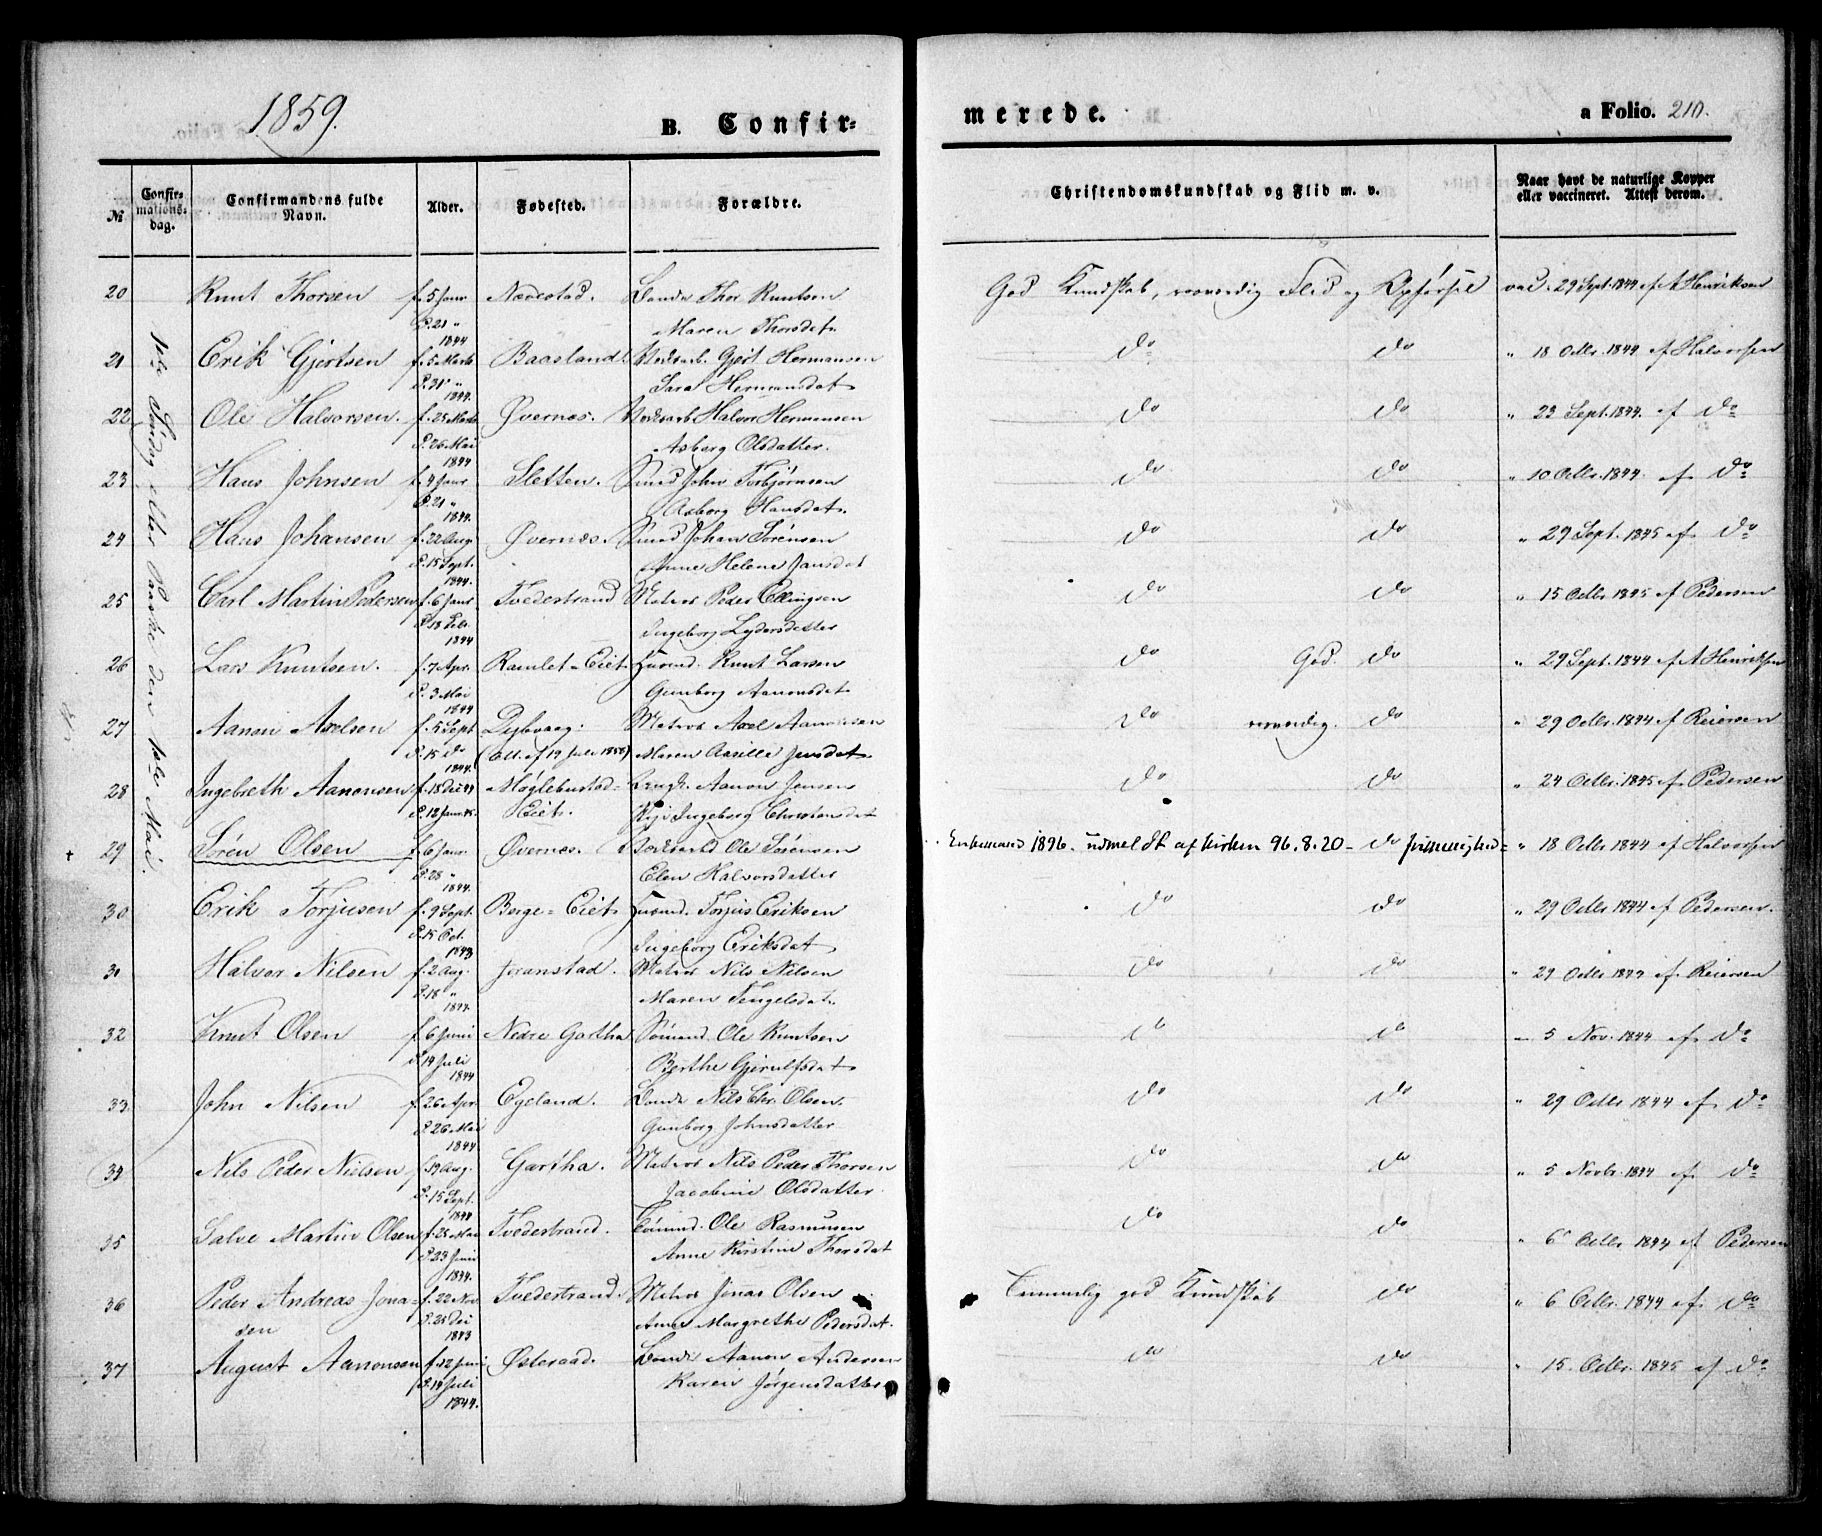 1859.
B. Confir=
merede.
a Folio. 210.
№
Confir=
mations=
dag.
Confirmandens fulde
Navn.
Alder.
Fødested.
Forældre.
Christendomskundskab og Flid m. v.
Naar havt de naturlige Kopper
eller vaccineret. Attest derom.
1ste Søndag efter Paaske den 1ste Mai.
20 Knut Thorsen f. 5 Janr Nævestad. Bonde Thor Knutsen God Kundskab, roværdig Flid og Opførsel vac. 29 Sept. 1844 af A Henriksen
d. 21 " Maren Thorsdat.
1844
21 Erik Gjertsen f. 5 Marts Baasland. Nordarb. Gjert Hermansen do do " 18 Octbr. 1844 af Halvorsen
d. 31 " Sara Hermansdat.
1844.
22 Ole Halvorsen. f. 25 Marts Øvernæs. Halvor Hermansen do do " 23 Sept. 1844. af do
d. 26 Mai Asberg Olsdatter.
1844
23 Hans Johnsen f. 4 Janr Sletten. Smed John Torbjørnsen do do " 10 Octbr. 1844. af do
d. 21 " Asborg Hansdat.
1844.
24 Hans Johansen f. 22 Aug. Øvernæs. Smed Johan Sørensen do do " 29 Sept. 1845 af do
d. 15 Sept. Anne Helene Jansdat
1844.
25 Carl Martin Pedersen f. 6 Janr Tvedestrand Matros Peder Ellingsen do do " 15 Octbr 1845 af Pedersen
d. 18 Feb. Ingeborg Lydersdatter
1844
26 Lars Knutsen. f. 7 Apr. Ramlet=Eiet. Huusmd. Knut Larsen do God. do " 29 Sept. 1844 af A Henriksen
d. 3 Mai Gunborg Aanonsdat
1844
27 Aanon Axelsen f. 5 Sept Dybvaag. Matros Axel Aanonsen do roværdig. do " 29 Octbr 1844 af Reiersen
d. 15 do (Att. af 19 Juli 1858) Maren Aasille Jensdat.
1844.
28 Ingebreth Aanonsen f. 18 Dec 44 Møglebustad= Aanon Jensen do do " 24 Octbr 1845 af Pedersen
d. 12 Janr 45. Eiet. Ingeborg Christensdat
29 Søren Olsen f. 6 Janr Øvernæs. Ole Sørensen 1896. udmeldt af Kirken 96. 8. 20 - do " 18 Octbr 1844 af Halvorsen
d. 28 " Elen Halvorsdatter
1844.
30 Erik Torjusen f. 9 Sept. Berge=Eiet. Huusmd. Torjus Eriksen do do " 29 Octbr 1844 af Pedersen.
d. 15 Oct. Ingeborg Eriksdat
1843
31 Halvor Nilsen f. 2 Aug. Joranstad. Matros Nils Nilsen do do " 29 Octbr 1844 af Reiersen
d. 18 " Maren Tengelsdat.
1844.
32 Knut Olsen f. 6 Juni Nedre Gartha Sømand. Ole Knutsen do do " 5 Nov. 1844 af do
d. 14 Juli Berthe Gjerulfsdat
1844
33 John Nilsen f. 26 Apr. Egeland. Bonde Nils Chr. Olsen. do do " 29 Octbr 1844 af do
d. 26 Mai Gunborg Johnsdatter
1844
34 Nils Peder Nielsen f. 19 Aug. Gartha. Matros Nils Peder Thorsen do do " 5 Novbr. 1844 af do
d. 15 Sept. Jacobine Olsdatter
1844
35 Salve Martin Olsen f. 25 Mai Tvedestrand. Sømand. Ole Rasmusen do do " 6 Octbr 1844 af Pedersen
d. 23 Juni Anne Kirstine Thorsdat
1844.
36 Peder Andreas Jona= f. 22 Nov Tvedestrand. Matros Jonas Olsen Temmelig god Kundskab do " 6 Octbr. 1844 af do
sen d. 25 Dec Anne Margrethe Pedersdat.
1843
37 August Aanonsen f. 12 Juni Østeraad. Bonde Aanon Andersen do do " 15. Octbr. 1845 af do
d. 14 Juli Karen Jørgensdatter
1844.